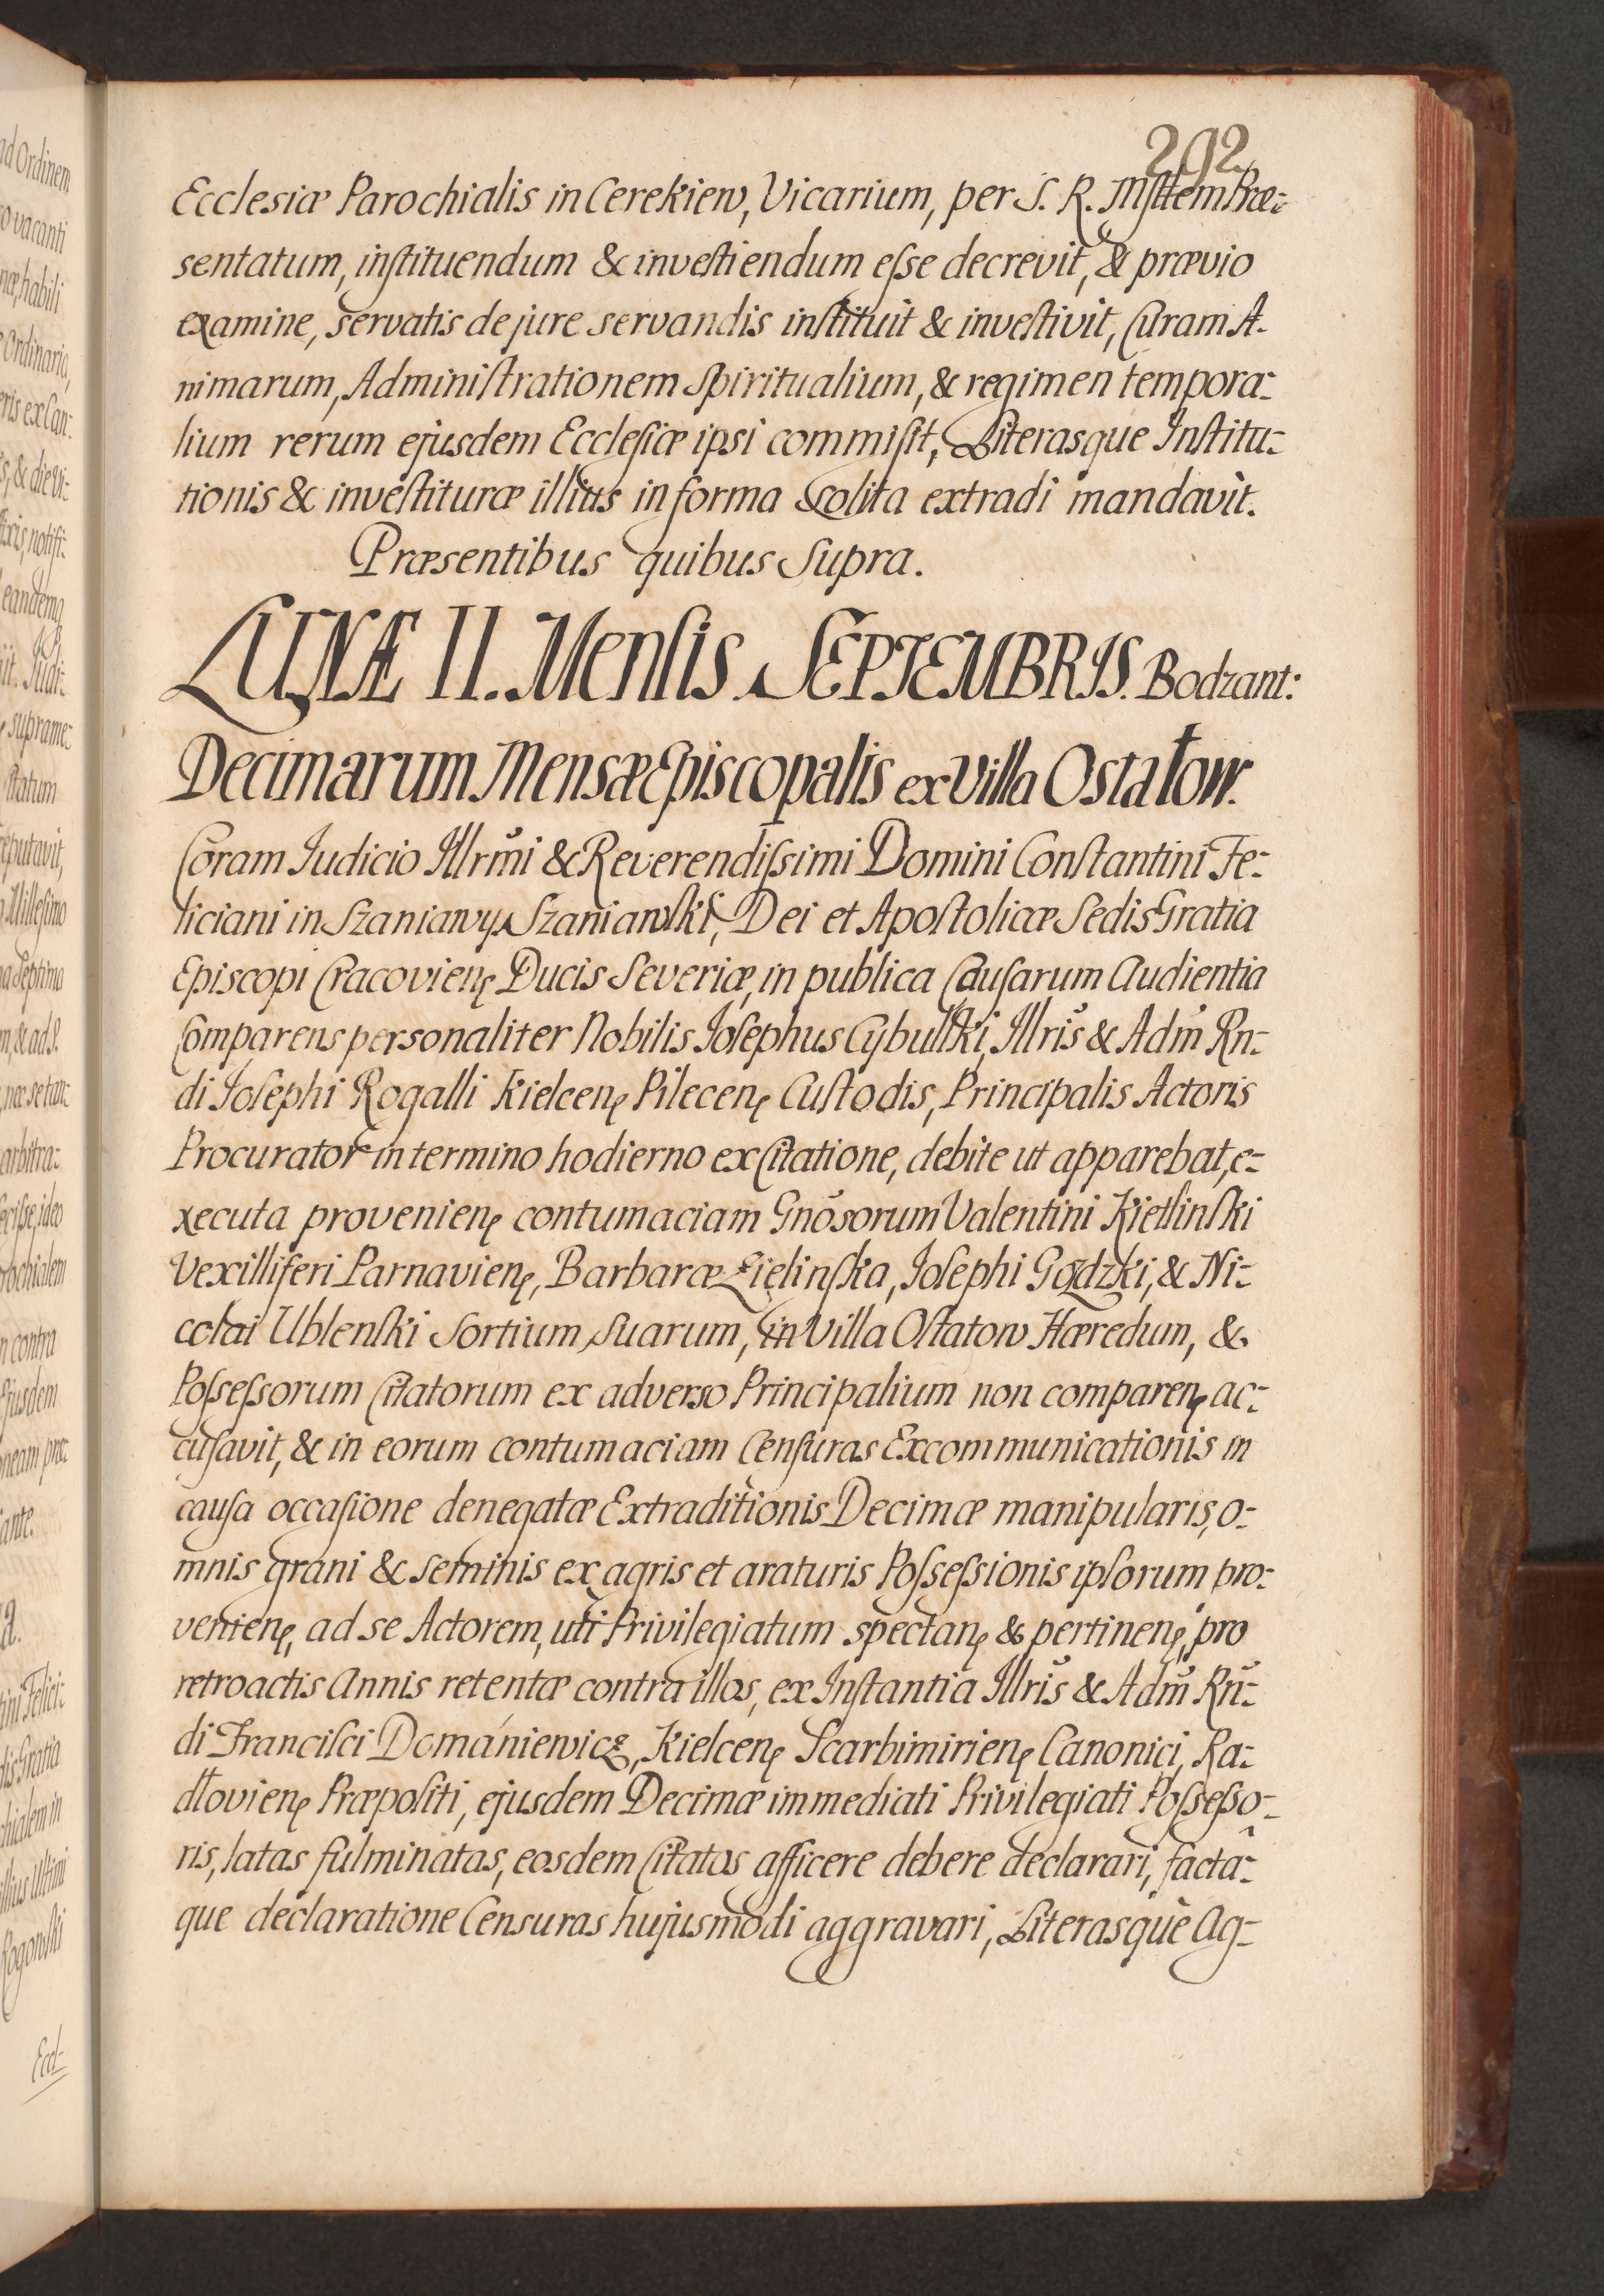 292
Ecclesiæ Parochialis in Cerekiew, Vicarium, per S. R. Mſttem Præ-
sentatum, inſtituendum & inveſtiendum eſse decrevit, & prævio
examine, servatis de jure servandis inſtituit & inveſtivit, Curam A-
nimarum, Adminiſtrationem Spiritualium, & regimen tempora-
lium rerum ejusdem Eccleſiæ ipsi commiſit, Literasque Inſtitu-
tionis & inveſtituræ illius in forma Solita extradi mandavit.
Præsentibus quibus Supra.
LUNÆ II. Menſis SEPTEMBRIS. Bodzant:
Decimarum Mensæ Episcopalis ex Villa Ostałow.
Coram Iudicio Illrm̃i & Reverendiſsimi Domini Conſtantini Fe-
liciani in Szaniawy Szaniawſki, Dei et Apoſtolicæ Sedis Gratia
Episcopi Cracovienę Ducis Severiæ, in publica Cauſarum Audientia
Comparens personaliter Nobilis Ioſephus Cybulſki, Illris̃ & Adm̃ Rn-
di Ioſephi Rogalli Kielcenę Pilecenę Cuſtodis, Principalis Actoris
Procurator in termino hodierno ex Citatione, debite ut apparebat, e-
xecuta provenienę contumaciam Gnõsorum Valentini Kietlinſki
Vexilliferi Parnavienę, Barbaræ Zielinſka, Ioſephi Gozdzki, & Ni-
colai Ublenſki Sortium Suarum, in Villa Oſtatow Hæredum, &
Poſseſsorum Citatorum ex adverso Principalium non comparenę ac-
cuſavit, & in eorum contumaciam Cenſuras Excommunicationis in
cauſa occaſione denegatæ Extraditionis Decimæ manipularis, o-
mnis grani & seminis ex agris et araturis Poſseſsionis ipſorum pro-
venienę, ad se Actorem, uti Privilegiatum spectanę & pertinenę, pro
retroactis Annis retentæ contra illos, ex Inſtantia Illris̃ & Adm̃ Rn̆-
di Franciſci Domániewicz, Kielcenę Scarbimirienę Canonici, Ra-
dłovienę Præpoſiti, ejusdem Decimæ immediati Privilegiati Poſseſso-
ris, latas fulminatas, eosdem Citatos afficere debere declarari, factâ-
que declaratione Censuras hujusmodi aggravari, Literasquè Ag-